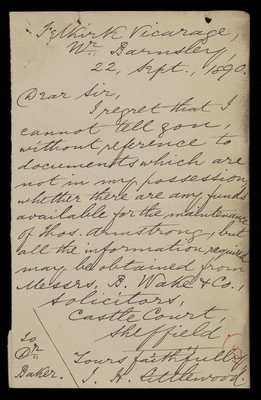 Felkirk Vicarage,
Nr. Barnsley,
22, Sept., 1890.
Dear Sir,
I regret that I
cannot tell you,
without reference to
documents which are
not in my possession,
whether there are any funds
available for the maintenance
of Thos. Armstrong, but
all the information required
may be obtained from
Messrs. B. Wake & Co.,
Solicitors,
Castle Court,
Sheffield.
Yours faithfully
J. H. Littlewood.
To
Dr.
Baker.